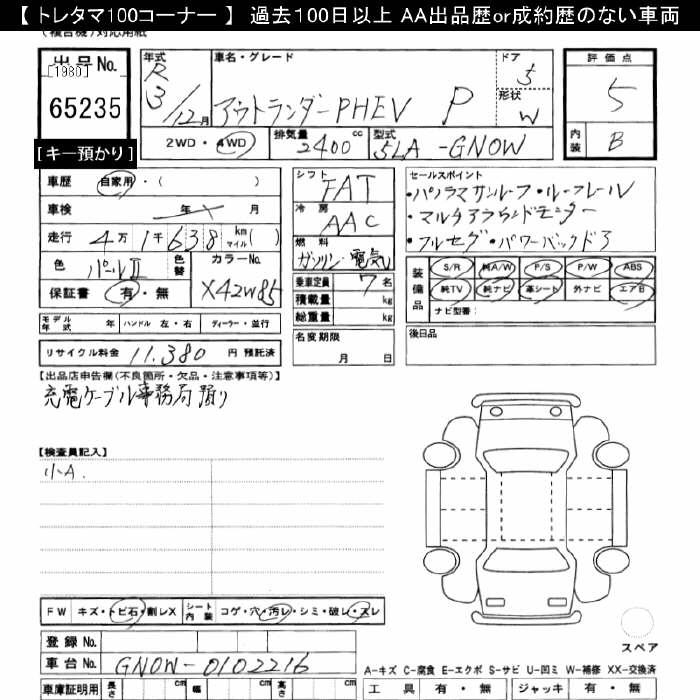 【 トレタマ100コーナー 】 過去100日以上 AA出品歴or成約歴のない車両
出品No. 年式 車名・グレード ドア 評価点
[1980] R 5 5
65235 3/12月 アウトランダーPHEV P 形状 W
2WD・4WD 排気量 2400 cc 型式 5LA-GN0W 内装 B
[キー預かり]
車歴 自家用・( ) シフト FAT セールスポイント
車検 年 月 冷房 AAC ・パノラマサンルーフ・ルーフレール
走行 4万1千638 km マイル( ) 燃料 ガソリン電気 ・マルチアラウンドモニター
色 パールII 色替 カラーNo. 乗車定員 7名 ・フルセグ・パワーバックドア
保証書 有・無 X42W85 積載量 kg 装備品 S/R 純A/W P/S P/W ABS
総重量 kg 純TV 純ナビ 革シート 外ナビ エアB
ナビ型番:
モデル年式 年 ハンドル 左・右 ディーラー・並行 名変期限 月 日 後日品
リサイクル料金 11,380 円 預託済
【出品店申告欄(不良箇所・欠品・注意事項等)】
充電ケーブル事務局預り
【検査員記入】
小A.
FW キズ・トビ石・割レX シート内装 コゲ・穴・汚レ・シミ・破レ・スレ
登録No.
車台No. GN0W-0102216 スペア
A-キズ C-腐食 E-エクボ S-サビ U-凹ミ W-補修 XX-交換済
車庫証明用 長さ cm 幅 cm 高さ cm 工具 有・無 ジャッキ 有・無